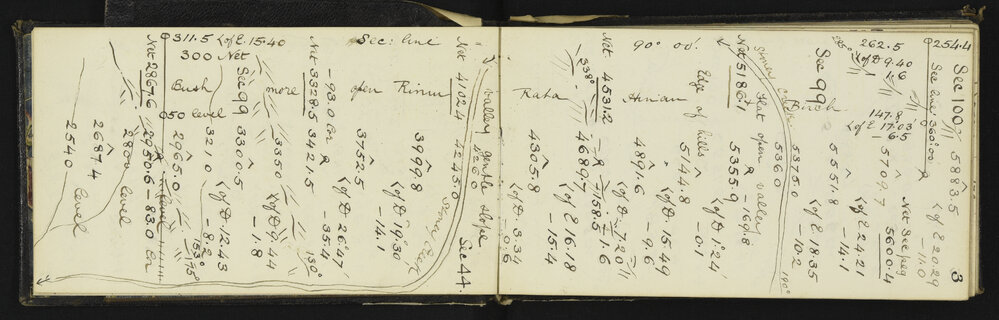 3
Sec 100
254.4
See line 360°.00'
5883.5
L of E 20.29
- 11.0
262.5
L of D 9.40
- .6
147.8
L of E 17.03'
- 6.5
Net See peg 5600.4
5709.7
L of E 24.21
- 14.1
Sec 99
Birch
5551.8
L of E 18.35
- 10.2
5375.0
5360
190°
Stoney creek
flat open valley
Net 5186.7
5355.9
- 169.8
Edge of hills
5144.8
L of D 1.24
- 0.1
90° 00'
Hinau
4891.6
L of D 15.49
- 9.6
L of D 7.20
- 1.6
Net 4531.2
- 158.5
338°
4689.7
L of E 16.18
- 15.4
Rata
4305.8
L of D 3.34
- 0.6
valley gentle slope
5260
Sec 44.
Net 4102.4
4245.0
Stoney Creek
Sec: line
Rimu
3999.8
L of D 19.30
- 14.1
open
3752.5
L of D 26.47
- 35.4
Net 3328.5
- 93.0 Cor
3421.5
130°
more
3350
L of D 9.44
- 1.8
311.5 L of E 15.40
300 Net
Sec 99
3300.5
L of D 12.43
- 8.2
Bush
050 level
3210
153°
75°
2965.0
level
Net 2867.6
2950.6
- 83.0 Cor
2800 level
2687.4
2540 level